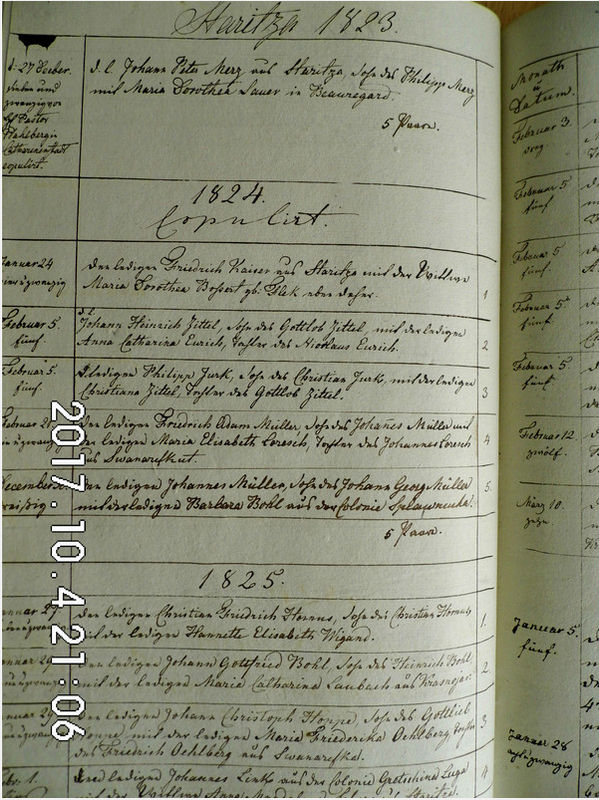 Staritza 1823.
d. 27 Decber.
sieben und
zwanzig von
H Pastor
Wahlberg in
Catharinenstadt
copulirt.
d. l. Johann Peter Merz aus Staritza, Sohn des Philipp Merz
mit Maria Dorothea Lauer in Beauregard.
5 Paare.
1824.
Copulirt.
Januar 24
vier u zwanzig
den ledigen Friedrich Kaiser aus Staritza mit der Wittwe
Maria Dorothea Bossert gb. Flek eben daher.
1
Februar 5.
fünf.
d. l.
Johann Heinrich Zittel, Sohn des Gottlob Zittel, mit der ledigen
Anna Catharina Eurich, Tochter des Nicolaus Eurich.
2
Februar 5.
fünf.
d ledigen Philipp Jurk, Sohn des Christian Jurk, mit der ledigen
Christiana Zittel, Tochter des Gottlob Zittel.
3
Februar
den ledigen Friedrich Adam Müller, Sohn des Johannes Müller mit
der ledigen Maria Elisabeth Loresch, Tochter des Johannes Loresch
aus Swanarefkut.
4
December
den ledigen Johannes Müller, Sohn des Johann Georg Müller
mit der ledigen Barbara Bohl aus der Colonie
5
5 Paare.
1825.
Januar 27
den ledigen Christian Friedrich Hornus, Sohn des Christian Hornus
mit der ledigen Hannette Elisabeth Wigand.
1.
den ledigen Johann Gottfried Bohl, Sohn des Heinrich Bohl,
mit der ledigen Maria Catharina Laubach aus Krasnojar.
2
den ledigen Johann Christoph Hoppe, Sohn des Gottlieb
Hoppe mit der ledigen Maria Friederika Oehlberg, Tochter
des Friedrich Oehlberg aus Swanarefka.
3
1.
den ledigen Johannes Lenk aus der Colonie Gretschina Luga
mit der Wittwe Anna aus Staritza.
4
Monath
u
Datum.
Februar 3.
drey.
Februar 5.
fünf
Februar 5
fünf
Februar 5.
fünf.
Februar 5.
fünf.
Februar 12.
zwölf.
März 10.
zehn.
Januar 5.
fünf.
Januar 28
acht u zwanzig
2017.10.4 21:06